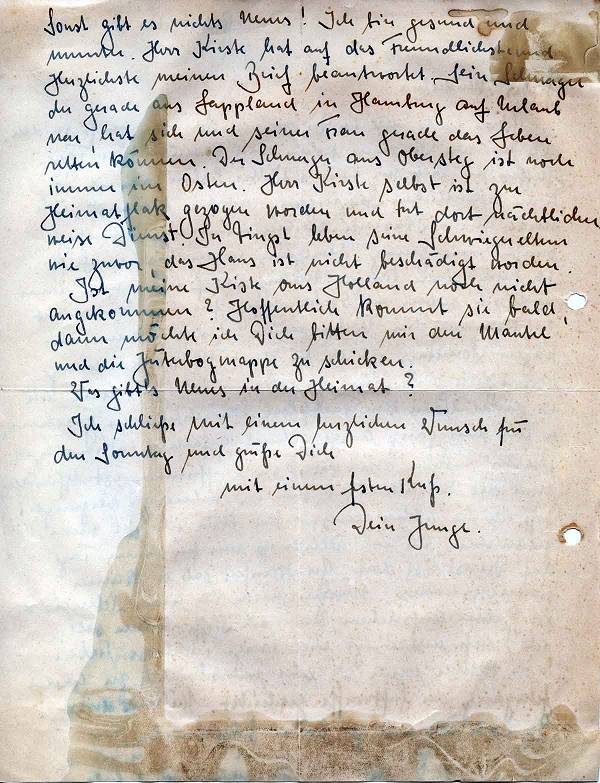 Sonst gibt es nichts Neues! Ich bin gesund und
munter. Herr Kirste hat auf das Freundlichste und
Herzlichste meinen Brief beantwortet. Sein Schwager
der gerade aus Lappland in Hamburg auf Urlaub
war, hat sich und seiner Frau gerade das Leben
retten können. Der Schwager aus Obersteg ist noch
immer im Osten. Herr Kirste selbst ist zur
Heimatflak gezogen worden und tut dort nächtlicher
weise Dienst. In Zingst leben seine Schwiegereltern
wie zuvor, das Haus ist nicht beschädigt worden.
Ist meine Kiste aus Holland noch nicht
angekommen? Hoffentlich kommt sie bald,
dann möchte ich Dich bitten mir den Mantel,
und die Jüterbogmappe zu schicken.
Was gibt's Neues in der Heimat?
Ich schließe mit einem herzlichen Wunsch für
den Sonntag und grüße Dich
mit einem festen Kuß.
Dein Junge.